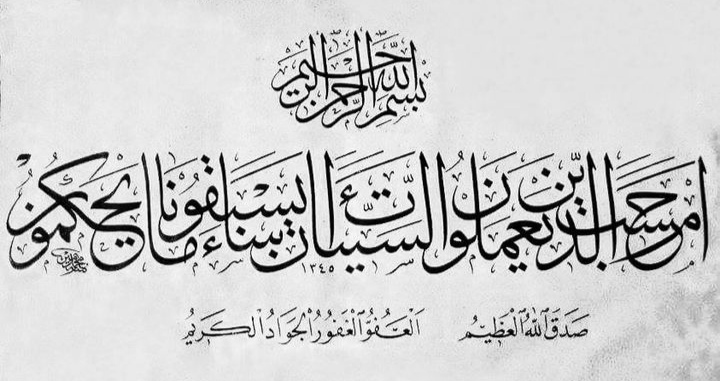 بسم الله الرحمن الرحيم
ام حسب الذين يعملون السيئات ان يسبقونا ساء ما يحكمون
١٣٤٥
صَدَقَ اللّٰهُ الْعَظِيمُ الْعَفُوُّ الْغَفُورُ الْجَوَادُ الْكَرِيمُ